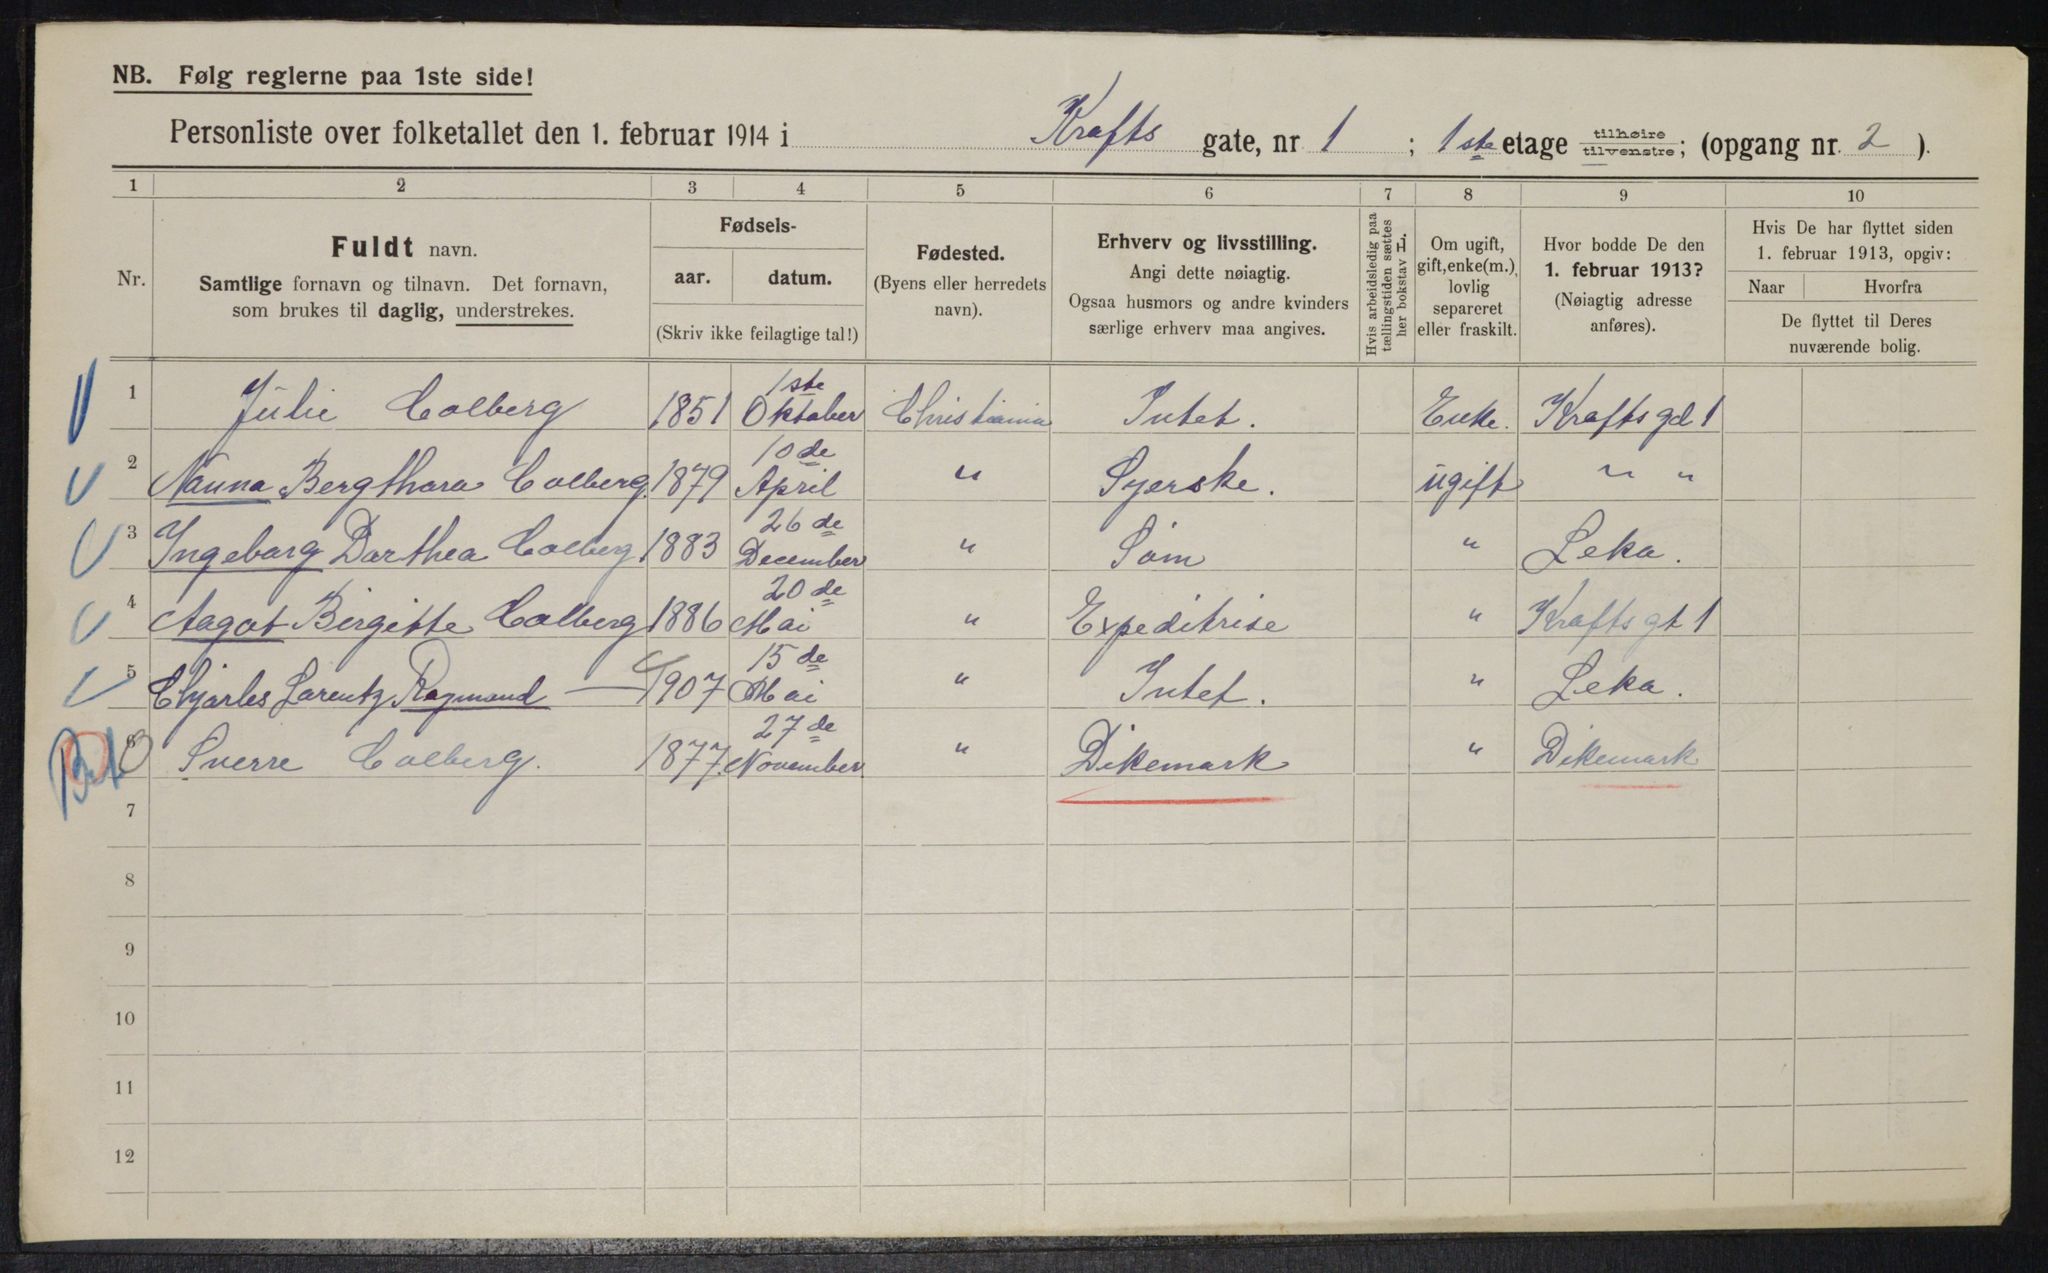 NB. Følg reglerne paa 1ste side!
Personliste over folketallet den 1. februar 1914 i Krafts gate, nr. 1 ; 1ste etage tilhøire tilvenstre; (opgang nr. 2 ).
1 2 3 4 5 6 7 8 9 10
Nr.
Fuldt navn.
Samtlige fornavn og tilnavn. Det fornavn,
som brukes til daglig, understrekes.
Fødsels-
aar. datum.
(Skriv ikke feilagtige tal!)
Fødested.
(Byens eller herredets
navn).
Erhverv og livsstilling.
Angi dette nøiagtig.
Ogsaa husmors og andre kvinders
særlige erhverv maa angives.
Hvis arbeidsledig paa
tællingstiden sættes
her bokstav L.
Om ugift,
gift, enke(m.),
lovlig
separeret
eller fraskilt.
Hvor bodde De den
1. februar 1913?
(Nøiagtig adresse
anføres).
Hvis De har flyttet siden
1. februar 1913, opgiv:
Naar Hvorfra
De flyttet til Deres
nuværende bolig.
1 Julie Colberg 1851 1ste Oktober Christiania Intet. Enke. Krafts gd 1
2 Nanna Bergthora Colberg 1879 10de April " Syerske. ugift " "
3 Ingeborg Dorthea Colberg 1883 26de December " Søm " Leka.
4 Aagot Birgitte Colberg 1886 20de Mai " Expeditrise " Krafts gt 1
5 Chjarles Lorentz Ragmund — " 1907 15de Mai " Intet. " Leka.
6 Sverre Colberg. 1877 27de November " Dikemark " Dikemark
7
8
9
10
11
12